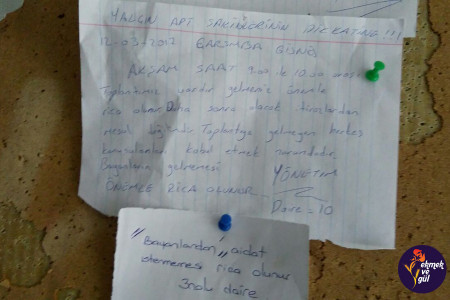 YALGIN APT. SAKİNLERİNİN DİKKATİNE !!!
12-03-2012 ÇARŞAMBA GÜNÜ
AKŞAM SAAT 9.00 ile 10.00 arası
Toplantımız vardır gelmeniz önemle
rica olunur Daha sonra olacak itirazlardan
mesul değildir Toplantıya gelmeyen herkes
konuşulanları kabul etmek zorundadır.
Bayanların gelmemesi YÖNETİM
ÖNEMLE RİCA OLUNUR
Daire = 10
"Bayanlardan" aidat
istenmemesi rica olunur
3nolu daire
ekmek
ve
gül